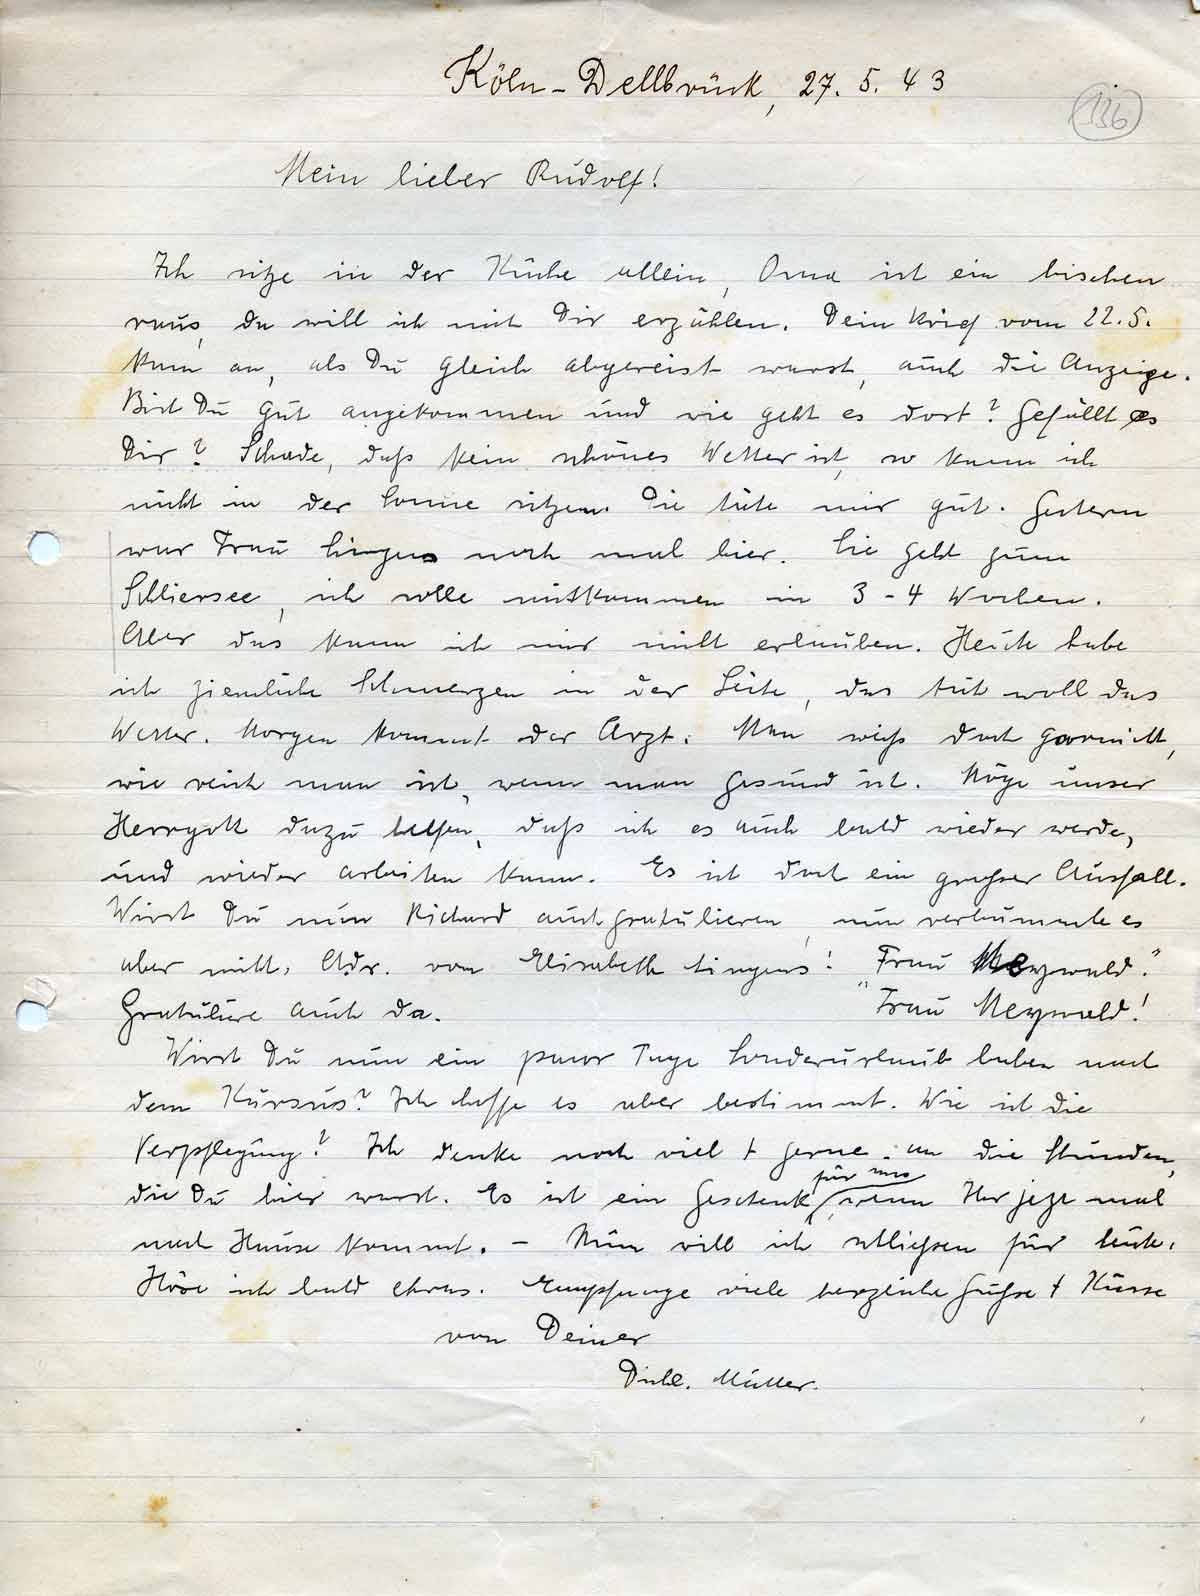 Köln-Dellbrück, 27. 5. 43
136
Mein lieber Rudolf!
Ich sitze in der Küche allein, Oma ist ein bischen
raus, da will ich mit Dir erzählen. Dein Brief vom 22.5.
kam an, als Du gleich abgereist warst, auch die Anzeige.
Bist Du gut angekommen und wie geht es dort? Gefällt es
Dir? Schade, daß kein schönes Wetter ist, so kann ich
nicht in der Sonne sitzen. Die täte mir gut. Gestern
war Frau Lingens noch mal hier. Sie geht zum
Schliersee, ich solle mitkommen in 3-4 Wochen.
Aber das kann ich mir nicht erlauben. Heute habe
ich ziemliche Schmerzen in der Seite, das tut woll das
Wetter. Morgen kommt der Arzt. Man weiß doch garnicht,
wie reich man ist, wenn man gesund ist. Möge unser
Herrgott dazu helfen, daß ich es auch bald wieder werde,
und wieder arbeiten kann. Es ist doch ein großer Ausfall.
Wirst Du nun Richard auch gratulieren, nun verbummele es
aber nicht. Adr. von Elisabeth Lingens! Frau Meywald."
Gratuliere auch da. "Frau Meywald!
Wirst Du nun ein paar Tage Sonderurlaub haben nach
dem Kursus? Ich hoffe es aber bestimmt. Wie ist die
Verpflegung? Ich denke noch viel + gerne an die Stunden,
die Du hier warst. Es ist ein Geschenk für uns, wenn Ihr jetzt mal
nach Hause kommt. - Nun will ich schließen für heute.
Höre ich bald etwas. Empfange viele herzliche Grüße + Küsse
von Deiner
Dichl. Mutter.